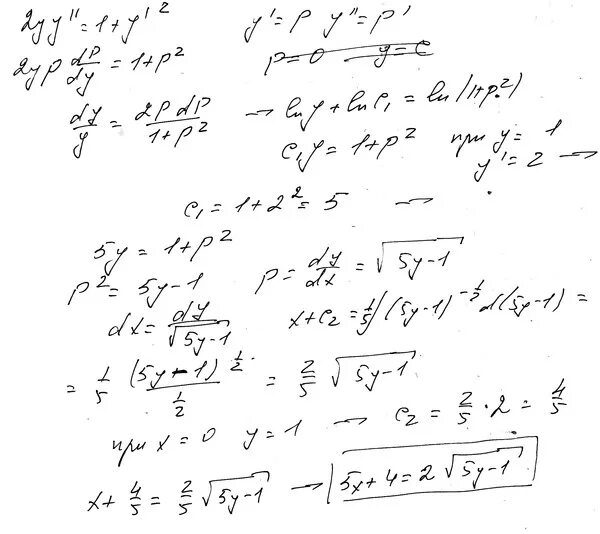 2yy'' = 1 + y'^2    y' = p  y'' = p'
2yp dp/dy = 1 + p^2    p = 0    y = c
dy/y = 2p dp/(1 + p^2) → ln y + ln c₁ = ln(1 + p^2)
c₁y = 1 + p^2    при y = 1
y' = 2 →
c₁ = 1 + 2^2 = 5 →
5y = 1 + p^2
p^2 = 5y - 1    p = dy/dx = √(5y - 1)
dx = dy/√(5y - 1)    x + c₂ = 1/5 ∫(5y - 1)^(-1/2) d(5y - 1) =
= 1/5 (5y - 1)^(1/2)/(1/2) = 2/5 √(5y - 1)
при x = 0  y = 1 → c₂ = 2/5 · 2 = 4/5
x + 4/5 = 2/5 √(5y - 1) → 5x + 4 = 2√(5y - 1)